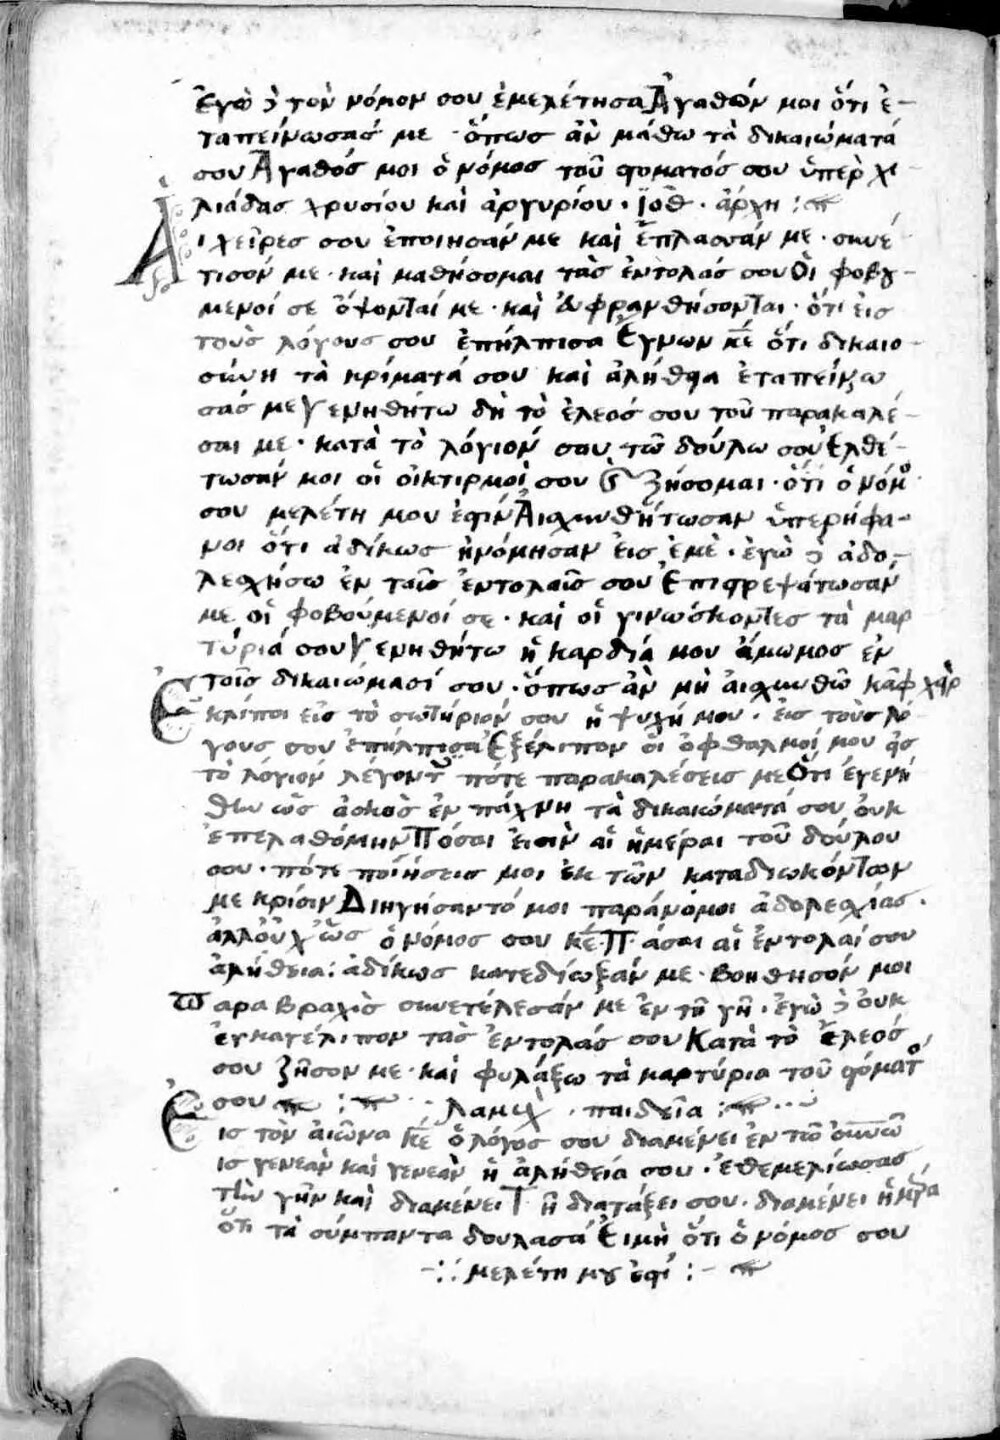 Ἐγὼ δὲ τὸν νόμον σου ἐμελέτησα Ἀγαθόν μοι ὅτι ἐ-
ταπείνωσάς με · ὅπως ἂν μάθω τὰ δικαιώματά
σου Ἀγαθός μοι ὁ νόμος τοῦ στόματός σου ὑπὲρ χι-
λιάδας χρυσίου καὶ ἀργυρίου · ἰὸθ · ἀρχὴ :
Αἱ χεῖρες σου ἐποίησάν με καὶ ἔπλασάν με · συνέ-
τισόν με · καὶ μαθήσομαι τὰς ἐντολάς σου Οἱ φοβού-
μενοί σε ὄψονταί με · καὶ εὐφρανθήσονται · ὅτι εἰς
τοὺς λόγους σου ἐπήλπισα Ἔγνων κε ὅτι δικαιο-
σύνη τὰ κρίματά σου καὶ ἀλήθεια ἐταπείνω
σάς με Γενηθήτω δὴ τὸ ἔλεός σου τοῦ παρακαλέ-
σαι με · κατὰ τὸ λόγιόν σου τῶ δούλω σου Ἐλθέ-
τωσάν μοι οἱ οἰκτιρμοί σου καὶ ζήσομαι · ὅτι ὁ νόμος
σου μελέτη μου ἐστίν Αἰσχυνθήτωσαν ὑπερήφα-
νοι ὅτι ἀδίκως ἠνόμησαν εἰς ἐμὲ · ἐγὼ δὲ ἀδο-
λεσχήσω ἐν ταῖς ἐντολαῖς σου Ἐπιστρεψάτωσάν
με οἱ φοβούμενοί σε · καὶ οἱ γινώσκοντες τὰ μαρ
τύριά σου Γενηθήτω ἡ καρδία μου ἄμωμος ἐν
τοῖς δικαιώμασί σου · ὅπως ἂν μὴ αἰσχυνθῶ κὰφ χεὶρ
Ἐκλίποι εἰς τὸ σωτήριόν σου ἡ ψυχή μου · εἰς τοὺς λό-
γους σου ἐπήλπισα Ἐξέλιπον οἱ ὀφθαλμοί μου εἰς
τὸ λόγιόν λέγοντες πότε παρακαλέσεις με Ὅτι ἐγενή
θην ὡς ἀσκὸς ἐν πάχνη τὰ δικαιώματά σου οὐκ
ἐπελαθόμην Πόσαι εἰσὶν αἱ ἡμέραι τοῦ δούλου
σου · πότε ποιήσεις μοι ἐκ τῶν καταδιωκόντων
με κρίσιν Διηγήσαντό μοι παράνομοι ἀδολεσχίας ·
ἀλλ' οὐχ ὡς ὁ νόμος σου κε · Πᾶσαι αἱ ἐντολαί σου
ἀλήθεια : ἀδίκως κατεδίωξάν με · βοήθησόν μοι
παρα βραχὺ συνετέλεσάν με ἐν τῆ γῆ · ἐγὼ δὲ οὐκ
ἐγκατέλιπον τὰς ἐντολάς σου Κατὰ τὸ ἔλεός
σου ζῆσον με · καὶ φυλάξω τὰ μαρτύρια τοῦ στόματός
σου : λαμὲδ · παιδεῖα :
Εἰς τὸν αἰῶνα κε ὁ λόγος σου διαμένει ἐν τῶ οὐνῶ
εἰς γενεὰν καὶ γενεὰν ἡ ἀλήθειά σου · ἐθεμελίωσας
τὴν γῆν καὶ διαμένει Τῆ διατάξει σου · διαμένει ἡμέρα
ὅτι τὰ σύμπαντα δουλα σά Εἰ μὴ ὅτι ὁ νόμος σου
μελέτη μου ἐστί :